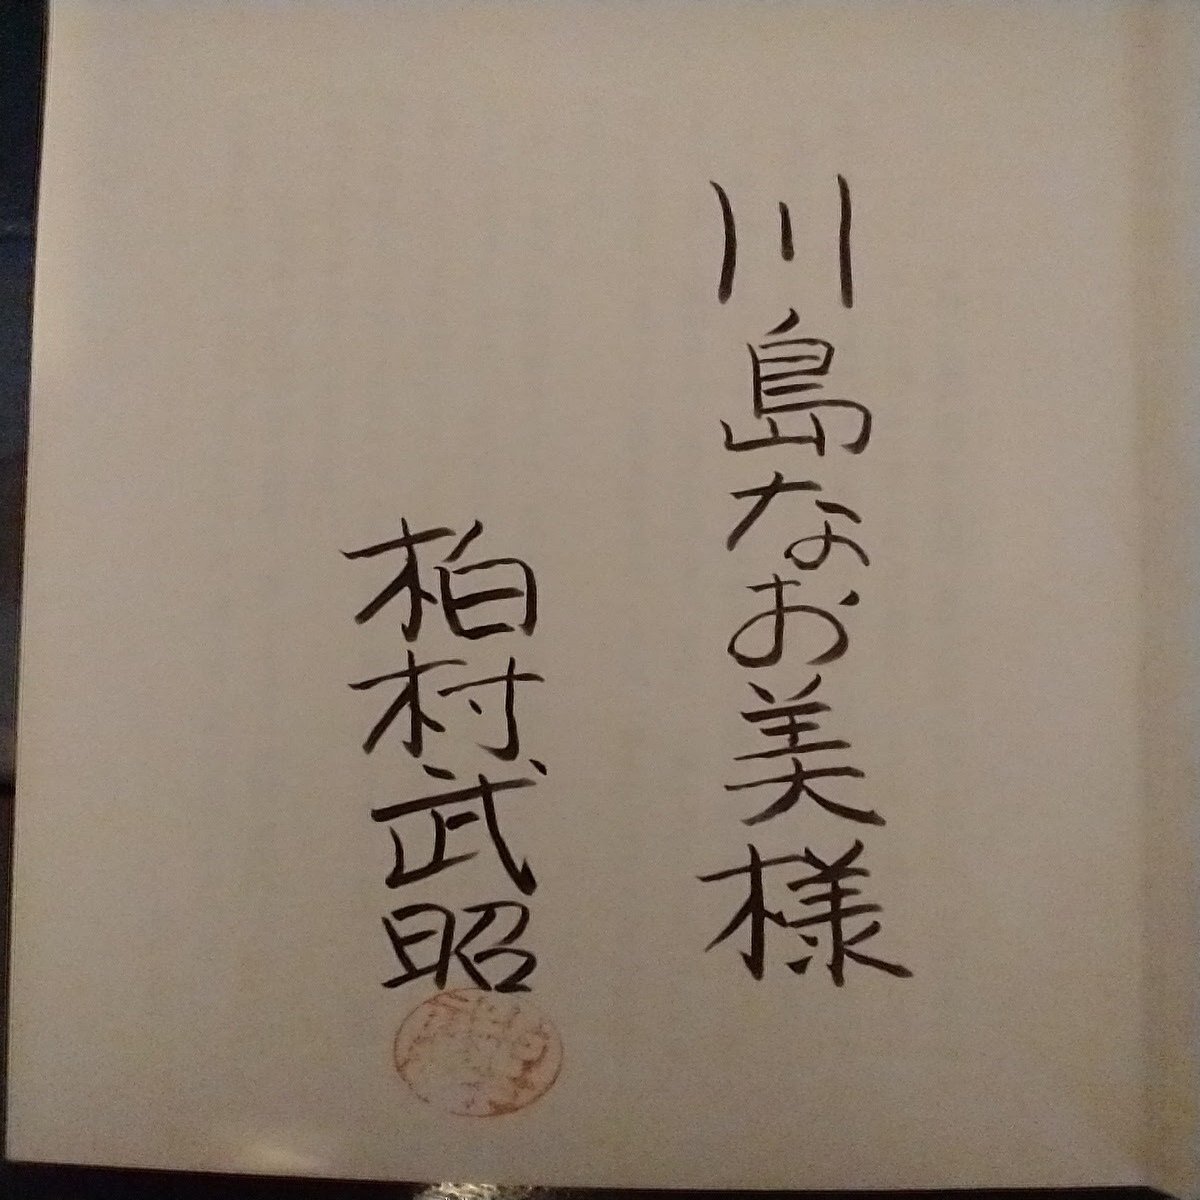 川島なお美様
柏村武昭